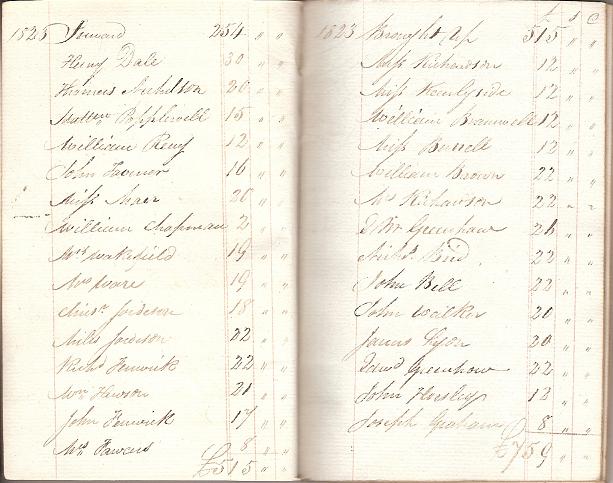 1823 Forward 254 " "
Henry Dale 30 " "
Thomas Nicholson 20 " "
Matthew Popplewell 15 " "
William Reay 12 " "
John Turner 16 " "
Miss Mair 20 " "
William Chapman 2 " "
Mrs Wakefield 19 " "
Mrs Ware 19 " "
Chisr. Jordeson 18 " "
Miles Jordeson 22 " "
Richd Fenwick 22 " "
Wm Hewson 21 " "
John Fenwick 17 " "
Mrs 8 " "
£515 " "
£ s d
1823 Brought Up 515 " "
Miss Richardson 12 " "
Miss 12 " "
William Bramwell 12 " "
Miss Burrell 12 " "
William Brown 22 " "
Mr Richardson 22 " "
Greenhow 26 " "
Richd. Reid 22 " "
John Bell 22 " "
John Walker 20 " "
James Lyon 20 " "
Edwd Greenhow 22 " "
John 12 " "
Joseph Graham 8 " "
£759 " "